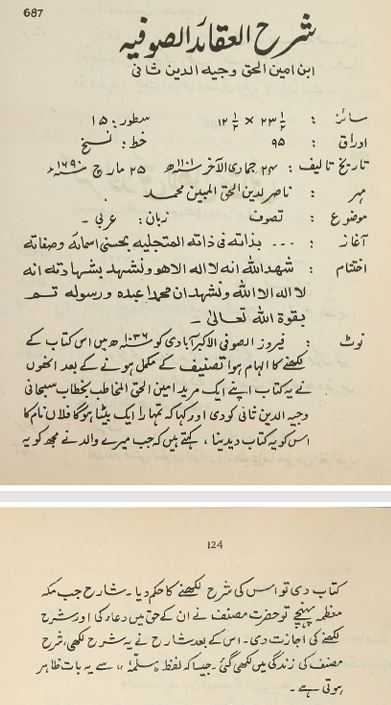 687
شرح العقائد الصوفيه
ابن امین الحق وجیہ الدین ثانی
سائز : ۲۳ ۱/۲ × ۱۲ ۱/۲ سطور: ۱۵
اوراق : ۹۵ خط: نسخ
تاریخ تالیف : ۲۴ جمادی الآخر سنہ ۱۱۰۱ھ ۲۵ مارچ سنہ ۱۶۹۰ء
مہر : ناصر لدین الحق المبین محمد
موضوع : تصوف زبان: عربی ۔
آغاز : ۔۔۔ بذاته فی ذاته المتجلیه بحسنی اسمائه وصفاته
اختتام : شهد الله انه لا اله الا هو ونشهد بشهادته انه
لا اله الا الله ونشهد ان محمدا عبده و رسوله تم
بقوة الله تعالی ۔
نوٹ : فیروز الصوفی الاکبر آبادی کو سنہ ۱۰۳۶ھ میں اس کتاب کے
لکھنے کا الہام ہوا تصنیف کے مکمل ہونے کے بعد انھوں
نے یہ کتاب اپنے ایک مرید امین الحق المخاطب بخطاب سبحانی
وجیہ الدین ثانی کو دی اور کہا کہ تمہارا ایک بیٹا ہوگا فلاں نام کا
اس کو یہ کتاب دیدینا ، کہتے ہیں کہ جب میرے والد نے مجھ کو یہ
124
کتاب دی تو اس کی شرح لکھنے کا حکم دیا ۔ شارح جب مکہ
معظمہ پہنچے تو حضرت مصنف نے ان کے حق میں دعاء کی اور شرح
لکھنے کی اجازت دی ۔ اس کے بعد شارح نے یہ شرح لکھی، شرح
مصنف کی زندگی میں لکھی گئی ۔ جیسا کہ لفظ "سلّمہٗ" سے یہ بات ظاہر
ہوتی ہے ۔